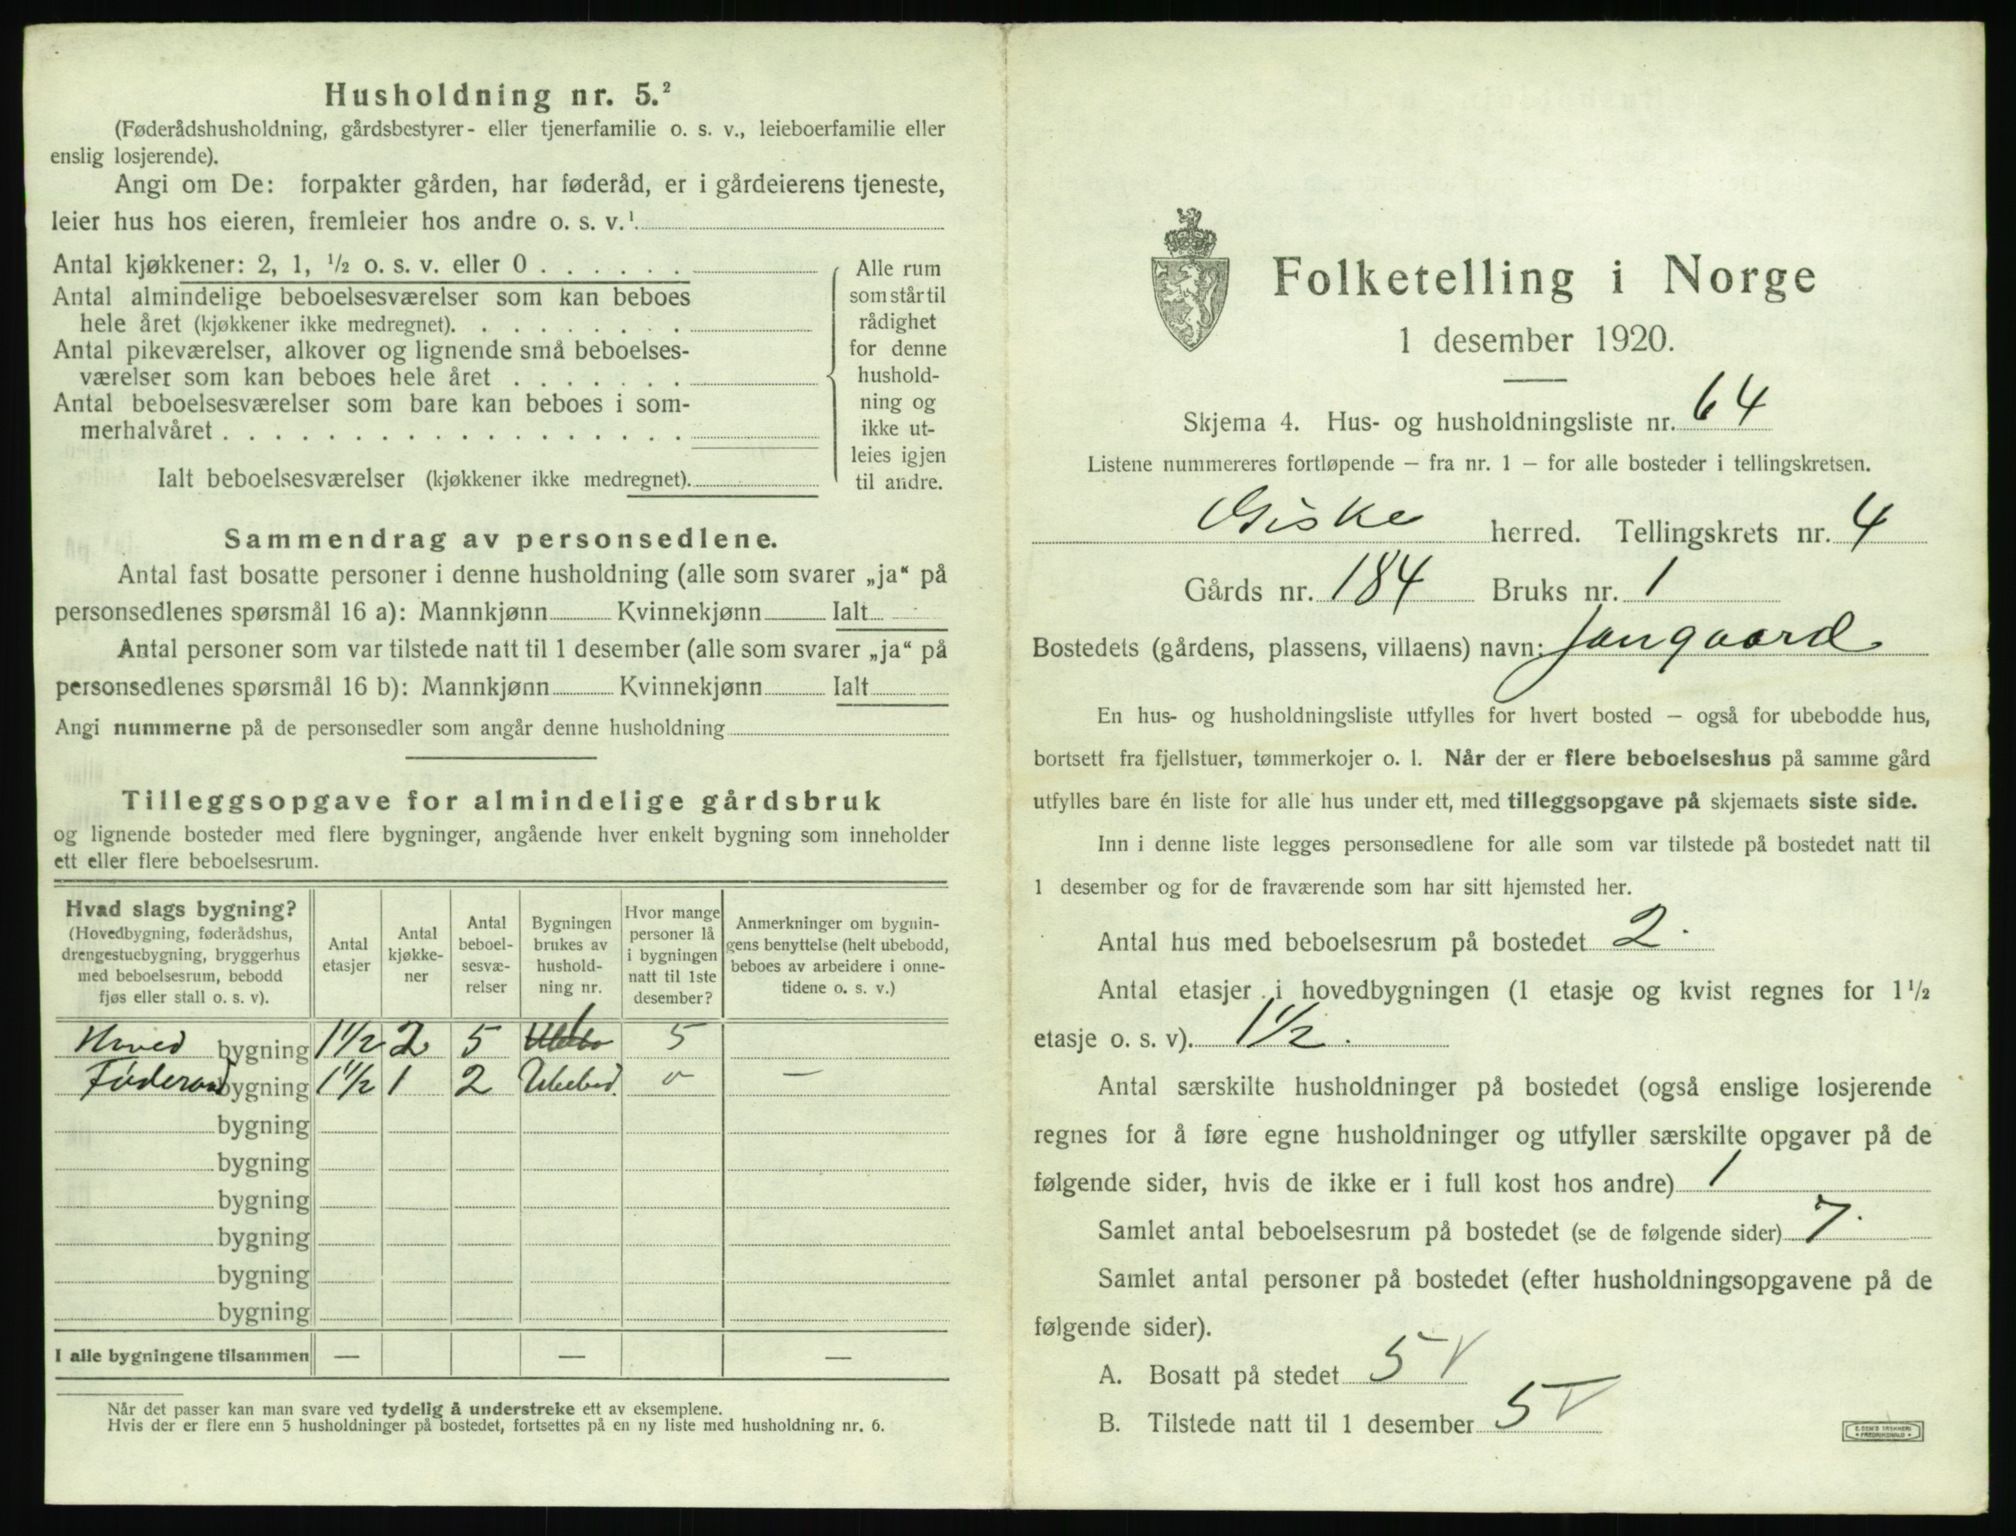 Husholdning nr. 5.²
(Føderådshusholdning, gårdsbestyrer- eller tjenerfamilie o. s. v., leieboerfamilie eller
enslig losjerende).
Angi om De: forpakter gården, har føderåd, er i gårdeierens tjeneste,
leier hus hos eieren, fremleier hos andre o. s. v.¹
Antal kjøkkener: 2, 1, ½ o. s. v. eller 0 . . . . . .
Antal almindelige beboelsesværelser som kan beboes
hele året (kjøkkener ikke medregnet). . . . . . . . .
Antal pikeværelser, alkover og lignende små beboelses-
værelser som kan beboes hele året . . . . . . .
Antal beboelsesværelser som bare kan beboes i som-
merhalvåret . . . . . . . . . . . . . . . . .
Ialt beboelsesværelser (kjøkkener ikke medregnet).
Alle rum
som står til
rådighet
for denne
hushold-
ning og
ikke ut-
leies igjen
til andre.
Sammendrag av personsedlene.
Antal fast bosatte personer i denne husholdning (alle som svarer „ja“ på
personsedlenes spørsmål 16 a): Mannkjønn Kvinnekjønn Ialt
Antal personer som var tilstede natt til 1 desember (alle som svarer „ja“ på
personsedlenes spørsmål 16 b): Mannkjønn Kvinnekjønn Ialt
Angi nummerne på de personsedler som angår denne husholdning
Tilleggsopgave for almindelige gårdsbruk
og lignende bosteder med flere bygninger, angående hver enkelt bygning som inneholder
ett eller flere beboelsesrum.
Hvad slags bygning?
(Hovedbygning, føderådshus,
drengestuebygning, bryggerhus
med beboelsesrum, bebodd
fjøs eller stall o. s. v).
Antal
etasjer
Antal
kjøkke-
ner
Antal
beboel-
sesvæ-
relser
Bygningen
brukes av
hushold-
ning nr.
Hvor mange
personer lå
i bygningen
natt til 1ste
desember?
Anmerkninger om bygnin-
gens benyttelse (helt ubebodd,
beboes av arbeidere i onne-
tidene o. s. v.)
Hoved bygning 1½ 2 5 1 5
Føderaad bygning 1½ 1 2 Ubebod. 0 —
bygning
bygning
bygning
bygning
bygning
bygning
I alle bygningene tilsammen — — —
Når det passer kan man svare ved tydelig å understreke ett av eksemplene.
Hvis der er flere enn 5 husholdninger på bostedet, fortsettes på en ny liste med husholdning nr. 6.
Folketelling i Norge
1 desember 1920.
Skjema 4. Hus- og husholdningsliste nr. 64
Listene nummereres fortløpende – fra nr. 1 – for alle bosteder i tellingskretsen.
Giske herred. Tellingskrets nr. 4
Gårds nr. 184 Bruks nr. 1
Bostedets (gårdens, plassens, villaens) navn: Jangaard
En hus- og husholdningsliste utfylles for hvert bosted – også for ubebodde hus,
bortsett fra fjellstuer, tømmerkojer o. l. Når der er flere beboelseshus på samme gård
utfylles bare én liste for alle hus under ett, med tilleggsopgave på skjemaets siste side.
Inn i denne liste legges personsedlene for alle som var tilstede på bostedet natt til
1 desember og for de fraværende som har sitt hjemsted her.
Antal hus med beboelsesrum på bostedet 2.
Antal etasjer i hovedbygningen (1 etasje og kvist regnes for 1½
etasje o. s. v). 1½.
Antal særskilte husholdninger på bostedet (også enslige losjerende
regnes for å føre egne husholdninger og utfyller særskilte opgaver på de
følgende sider, hvis de ikke er i full kost hos andre) 1
Samlet antal beboelsesrum på bostedet (se de følgende sider) 7.
Samlet antal personer på bostedet (efter husholdningsopgavene på de
følgende sider).
A. Bosatt på stedet 5 V
B. Tilstede natt til 1 desember 5 V